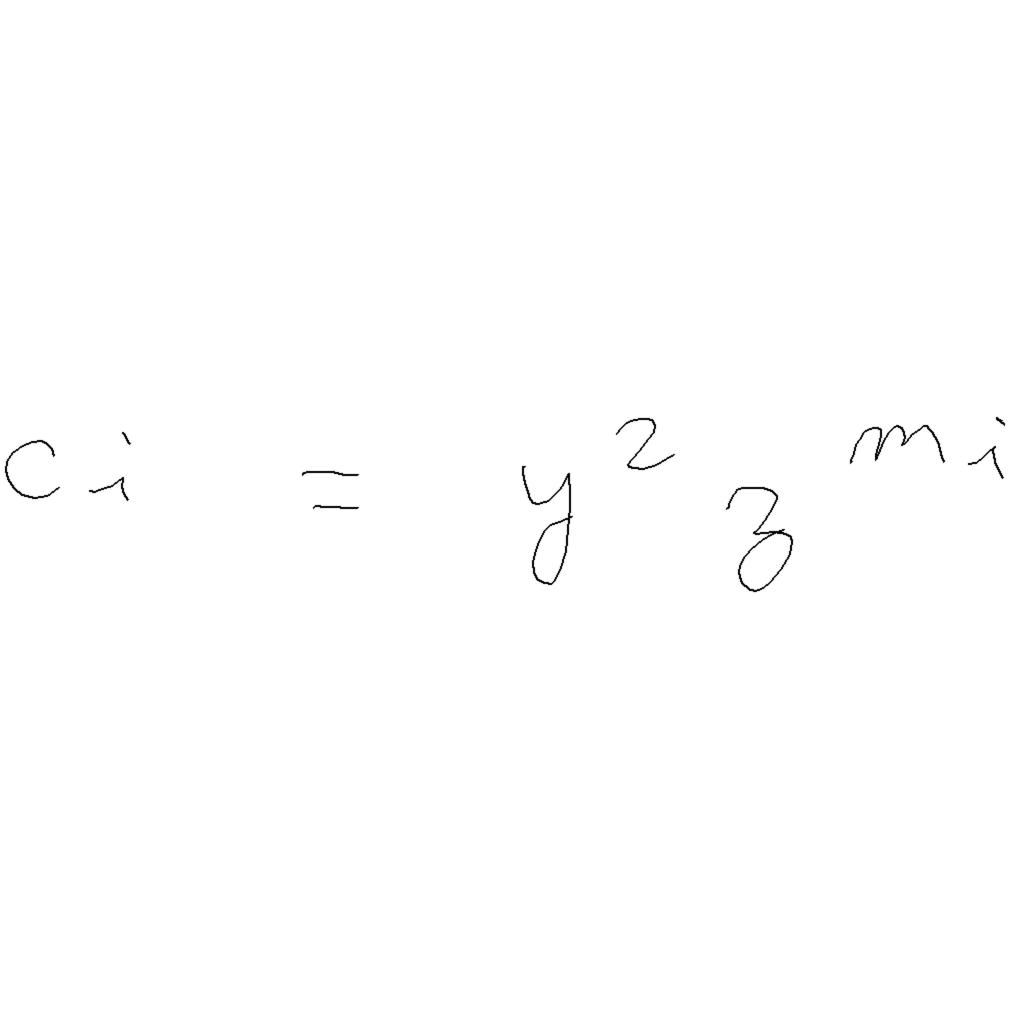 c_i = y^2 z^{m_i}